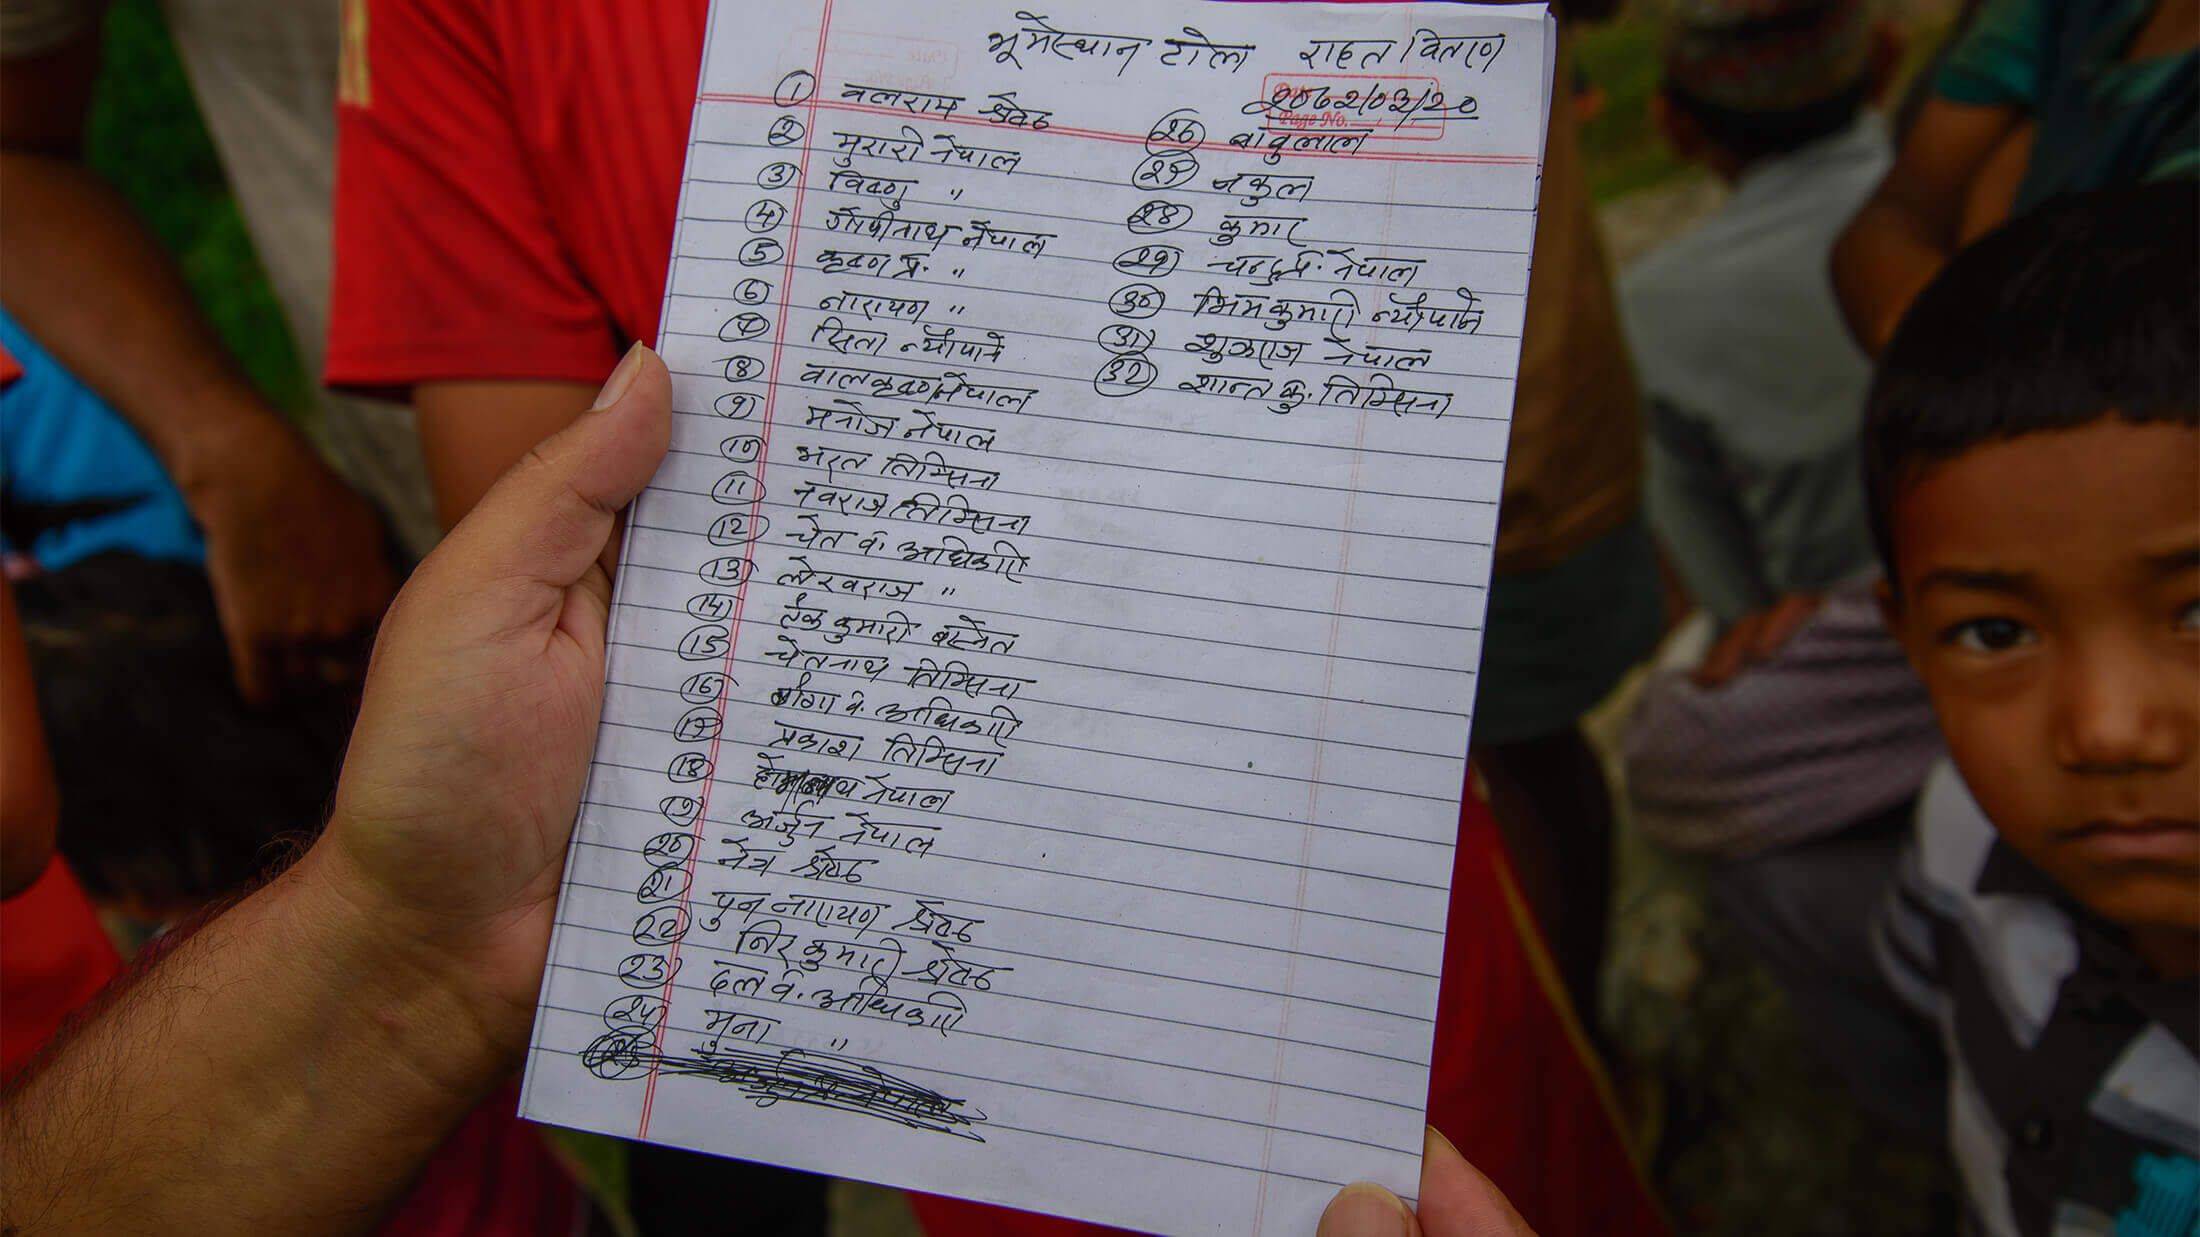 भूमेस्थान टोल राहत वितरण
२०७२/०३/२०
Page No.
1 वलराम श्रेष्ठ
2 मुरारी नेपाल
3 विष्णु "
4 गोपीनाथ नेपाल
5 कृष्ण प्र. "
6 नारायण "
7 सिता न्यौपाने
8 वालकृष्ण नेपाल
9 मनोज नेपाल
10 भरत तिम्सिना
11 नवराज तिम्सिना
12 चेत व. अधिकारी
13 लेखराज "
14 टंक कुमारी बस्नेत
15 चेतनाथ तिम्सिना
16 गंगा व. अधिकारी
17 प्रकाश तिम्सिना
18 नेपाल
19 अर्जुन नेपाल
20 नेत्र श्रेष्ठ
21 पुन नारायण श्रेष्ठ
22 निर कुमारी श्रेष्ठ
23 दल व. अधिकारी
24 मुना "
26 बाबुलाल
27 नकुल
28 कुमार
29 चन्द्र प्र. नेपाल
30 भिमकुमारी न्यौपाने
31 शुक्रराज नेपाल
32 शान्त कु. तिम्सिना